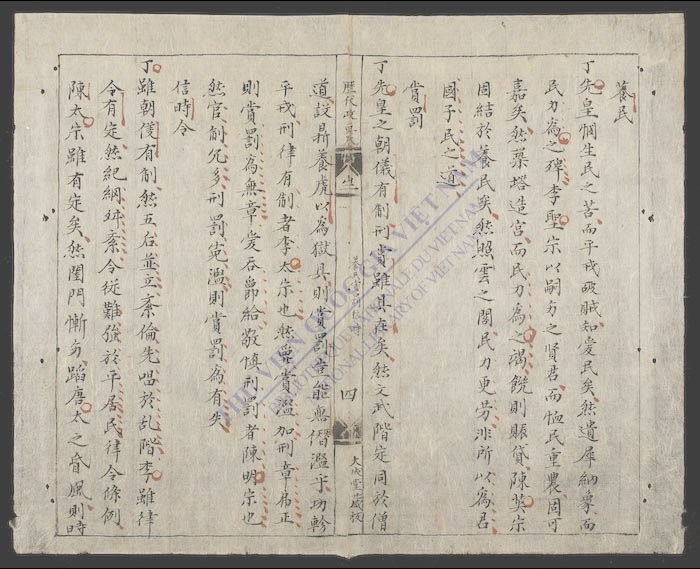 養民
丁先皇憫生民之苦而平戎破賊知愛民矣然遺犀納象而
民力為之殫李聖宗以嗣方之賢君而恤民重農固可
嘉矣然築塔造宮而民力為之竭饑則賑貸陳英宗
固結於養民矣然照雲之閣民力更勞非所以為君
國子民之道
賞罰
丁先皇之朝儀有制刑賞雖具在矣然文武階定同於僧
四
大成堂咸板
道設鼎養虎以為獄具則賞罰豈能無僭濫乎功軫
平戎刑律有制者李太宗也然爵賞濫加刑章易正
則賞罰為無章爰吞爵給敬慎刑罰者陳明宗也
然官制冗多刑罰冤濫則賞罰為有失
信時令
丁雖朝儀有制然五后並立紊倫先唱於乱階李雖律
令有定然紀綱紊令徒難強於平居民律令條例
陳太宗雖有定矣然閨門慚方蹈唐太之昏風則時
THƯ VIỆN QUỐC GIA VIỆT NAM
BIBLIOTHÈQUE NATIONALE DU VIETNAM
NATIONAL LIBRARY OF VIETNAM